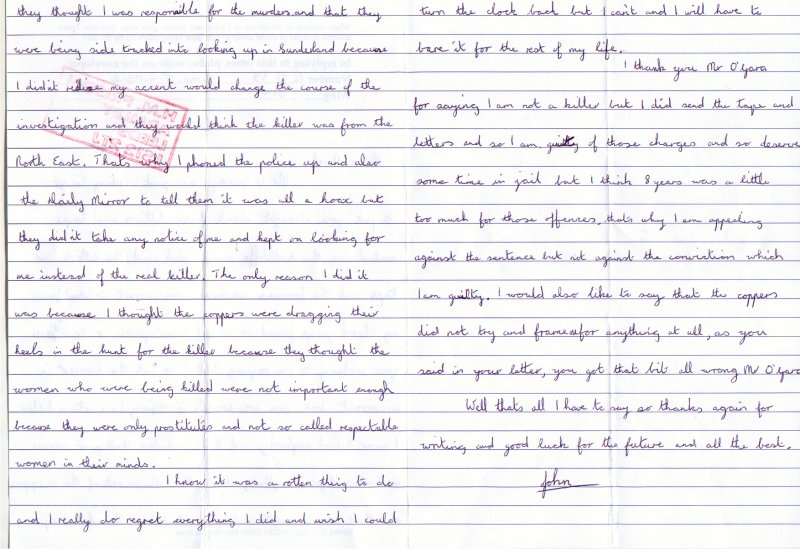 they thought I was responsible for the murders and that they
were being side tracked into looking up in Sunderland because
I did'it realise my accent would change the course of the
investigation and they would think the killer was from the
North East. Thats why I phoned the police up and also
the Daily Mirror to tell them it was all a hoax but
they did'it take any notice of me and kept on looking for
me instead of the real killer. The only reason I did it
was because I thought the coppers were dragging their
heels in the hunt for the killer because they thought the
women who were being killed were not important enough
because they were only prostitutes and not so called respectable
women in their minds.
I know it was a rotten thing to do
and I really do regret everything I did and wish I could
turn the clock back but I can't and I will have to
bare it for the rest of my life.
I thank you Mr O'Gara
for saying I am not a killer but I did send the Tape and
letters and so I am guilty of those charges and so deserve
some time in jail but I think 8 years was a little
too much for those offences, thats why I am appealing
against the sentence but not against the conviction which
I am guilty. I would also like to say that the coppers
did not try and frame me for anything at all, as you
said in your letter, you got that bit all wrong Mr O'Gara
Well thats all I have to say so thanks again for
writing and good luck for the future and all the best.
John